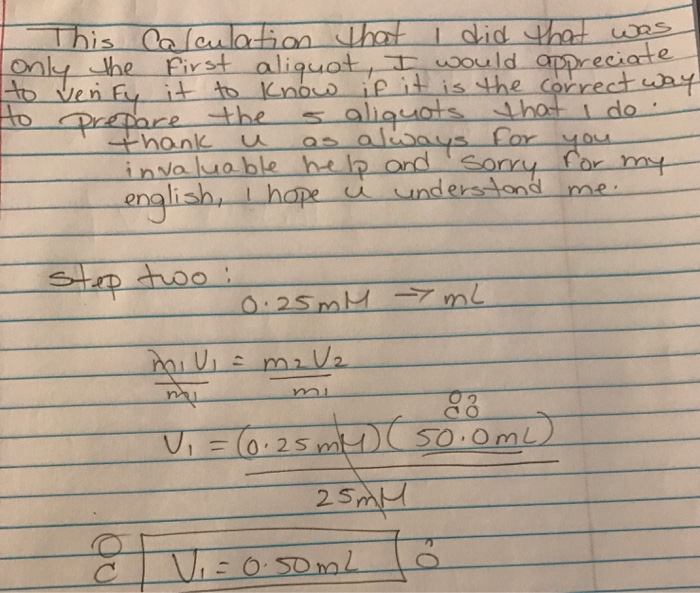 This Calculation that I did that was
only the First aliquot, I would appreciate
to verify it to know if it is the correct way
to prepare the 5 aliquots that I do.
thank u as always for you
invaluable help and sorry for my
english, I hope u understand me.
step two:
0.25mM → mL
m1V1 = m2V2
m1 m1
V1 = (0.25mM)(50.0mL)
25mM
V1 = 0.50mL